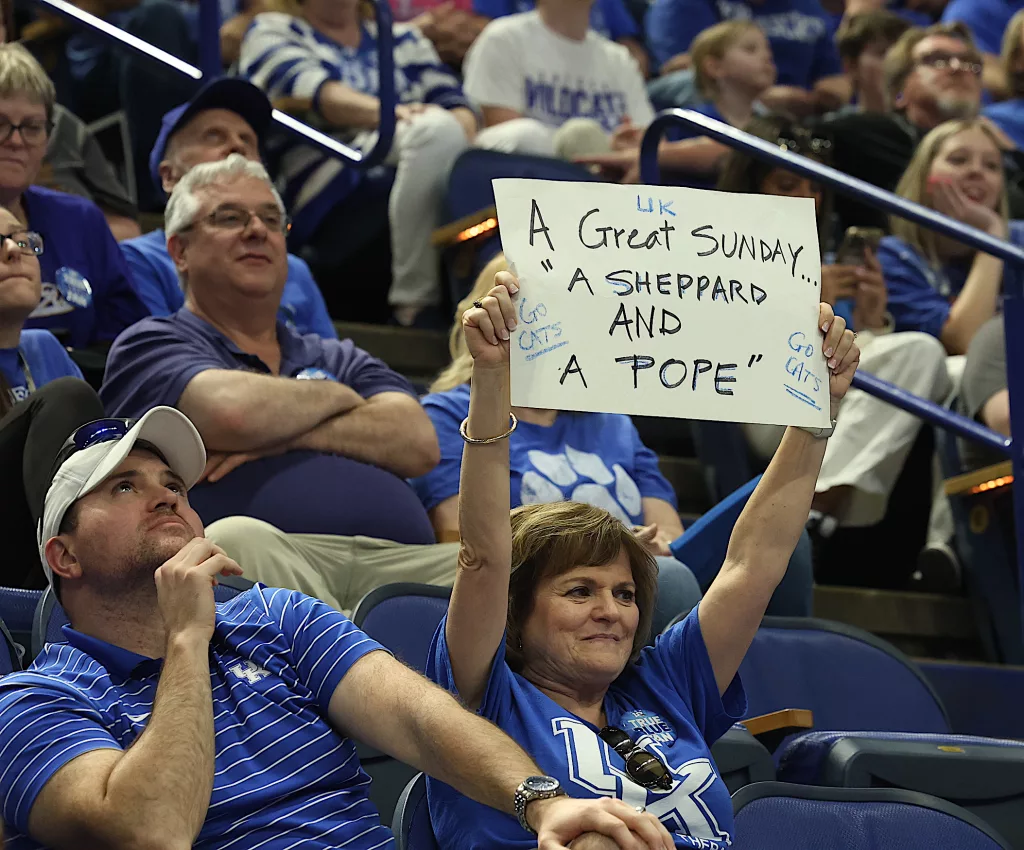 WILDCATS
UK
A Great SUNDAY...
"A SHEPPARD
AND
A POPE"
GO
CATS
GO
CATS
UK
TRUE
BLUE
FAN
UK